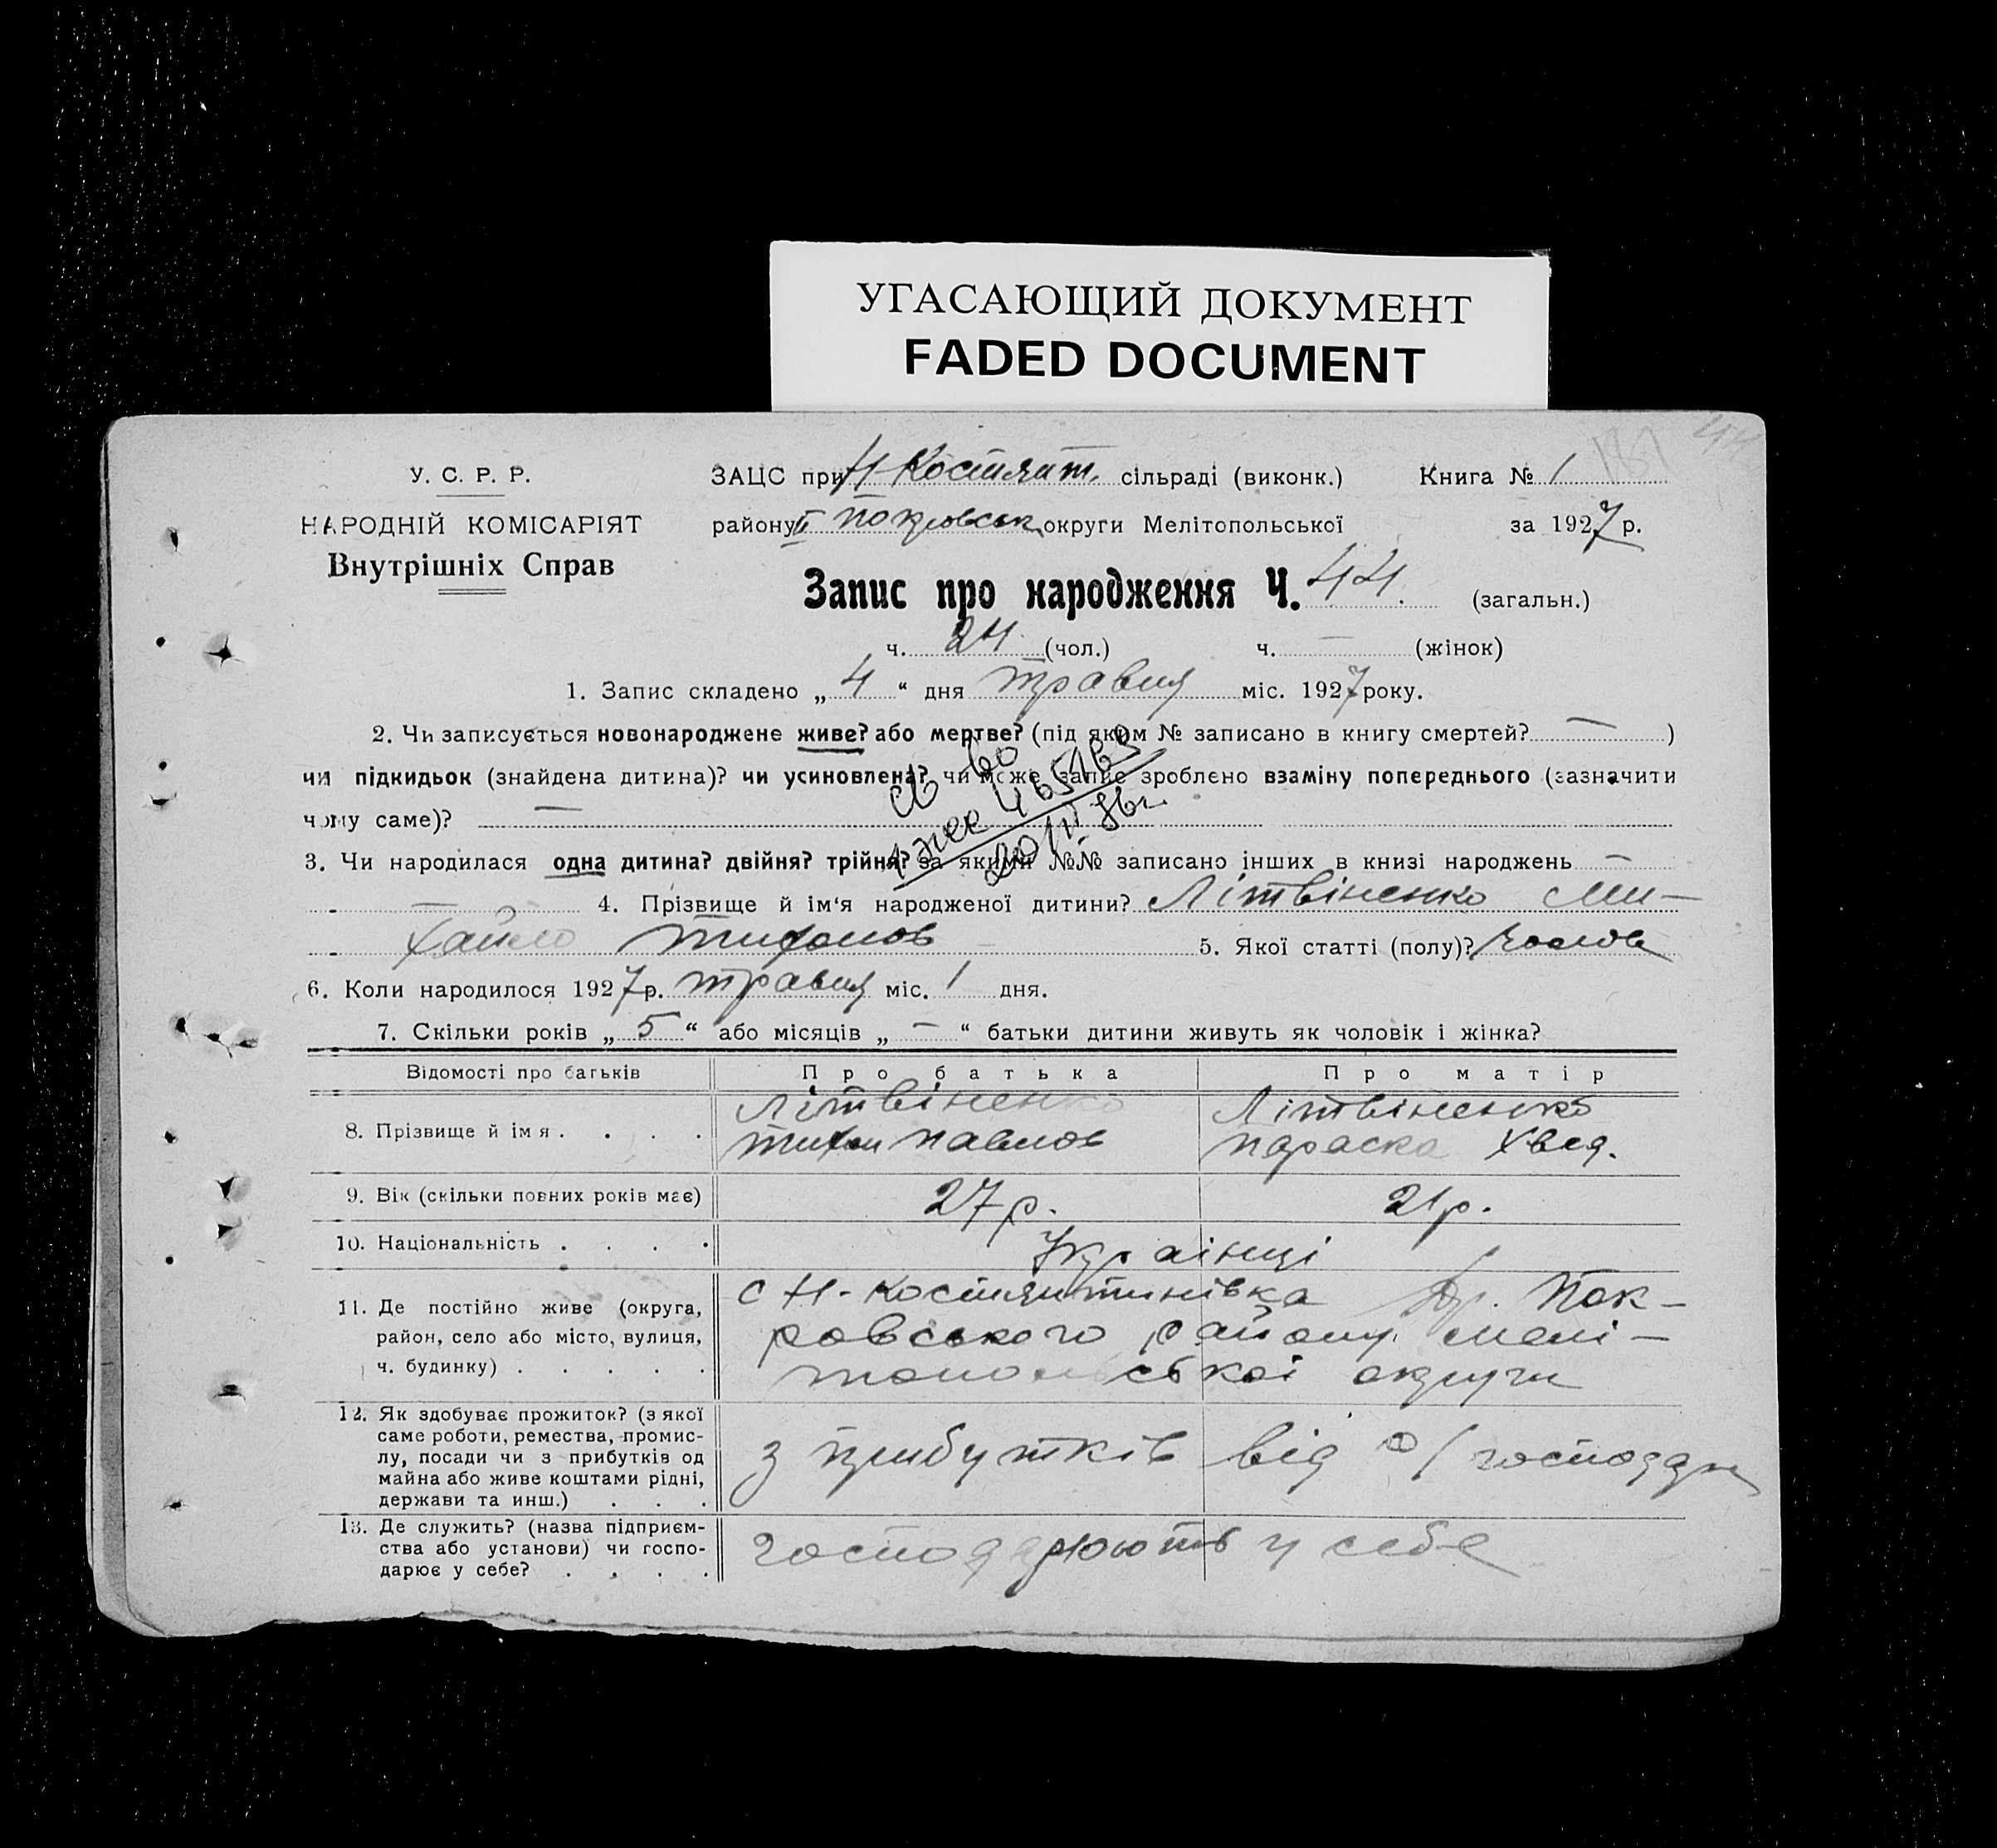 УГАСАЮЩИЙ ДОКУМЕНТ
FADED DOCUMENT
У. С. Р. Р.
НАРОДНІЙ КОМІСАРІЯТ
Внутрішніх Справ
ЗАЦС при Н-Костянт. сільраді (виконк.) Книга № 1 187 44
району II Покровськ округи Мелітопольської за 1927 р.
Запис про народження Ч. 44 (загальн.)
ч. 24 (чол.) ч. — (жінок)
1. Запис складено „ 4 “ дня травня міс. 1927 року.
2. Чи записується новонароджене живе? або мертве? (під яким № записано в книгу смертей? — )
чи підкидьок (знайдена дитина)? чи усиновлена? чи може запис зроблено взаміну попереднього (зазначити
чому саме)? —
св во
465163
3. Чи народилася одна дитина? двійня? трійня? за якими №№ записано інших в книзі народжень —
— 4. Прізвище й ім‘я народженої дитини? Літвіненко Ми-
хайло Тихонов 5. Якої статті (полу)? чолов
6. Коли народилося 1927 р. травня міс. 1 дня.
7. Скільки років „ 5 “ або місяців „ — “ батьки дитини живуть як чоловік і жінка?
Відомості про батьків Про батька Про матір
8. Прізвище й імя . . . . Літвіненко Літвіненко
Тихон Павлов Параска Хвед.
9. Вік (скільки повних років має) 27 р. 21 р.
10. Національність . . . . Українці
11. Де постійно живе (округа, район, село або місто, вулиця, ч. будинку) . . . . .
с Н-Костянтинівка Др. Пок-
ровського району Мелі-
топольської округи
12. Як здобуває прожиток? (з якої
саме роботи, ремества, промис-
лу, посади чи з прибутків од
майна або живе коштами рідні,
держави та инш.) . . .
з прибутків від с/господар
13. Де служить? (назва підприєм-
ства або установи) чи госпо-
дарює у себе? . . . .
господарюють у себе